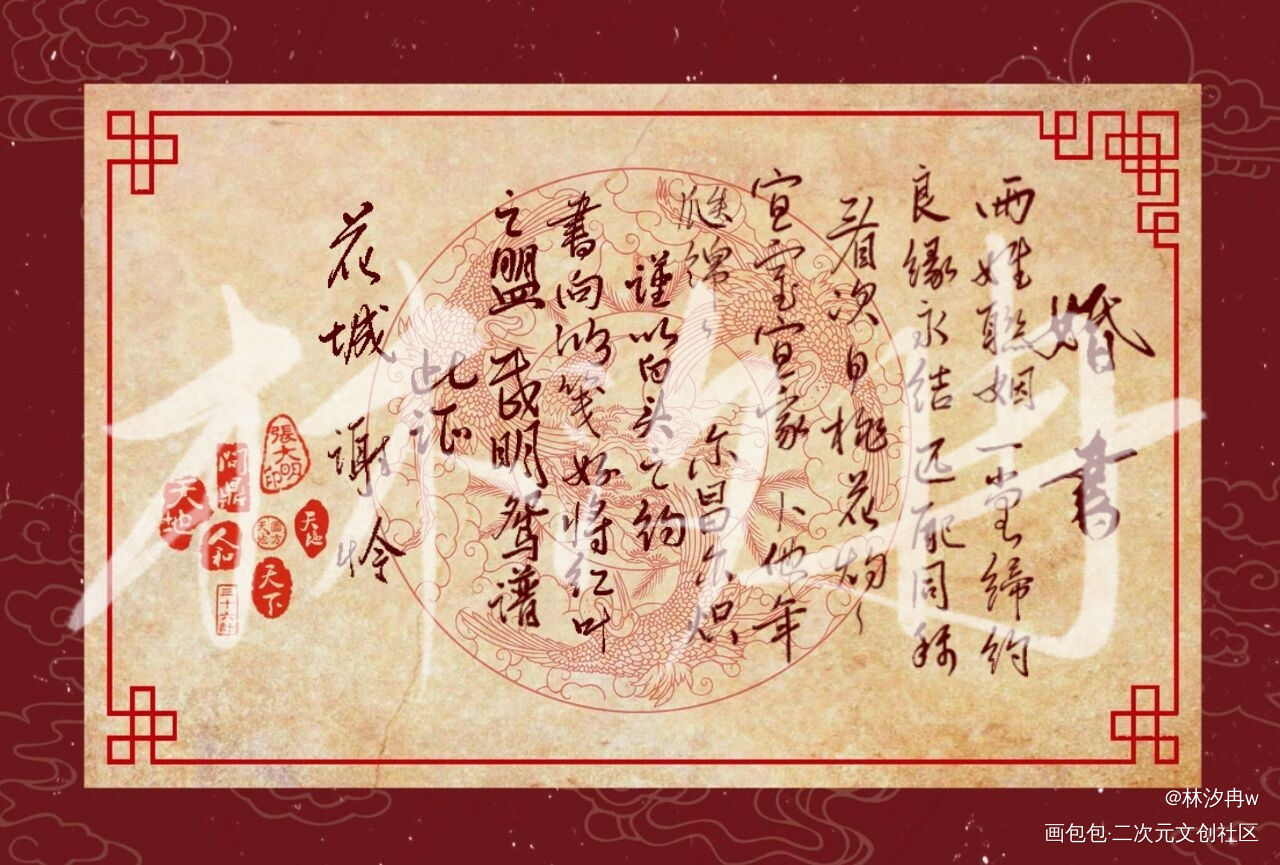 婚書
兩姓聯姻一堂缔约
良缘永结匹配同称
看次日桃花灼〻
宜室宜家卜他年
瓜迭绵〻尔昌尔炽
谨以白头之约
書向鸿笺好将红叶
之盟载明鸳谱
此证
花城 谢怜
張大明印
問鼎
天地
人和
天地
天下
三十六計
林汐冉
@林汐冉w
画包包·二次元文创社区